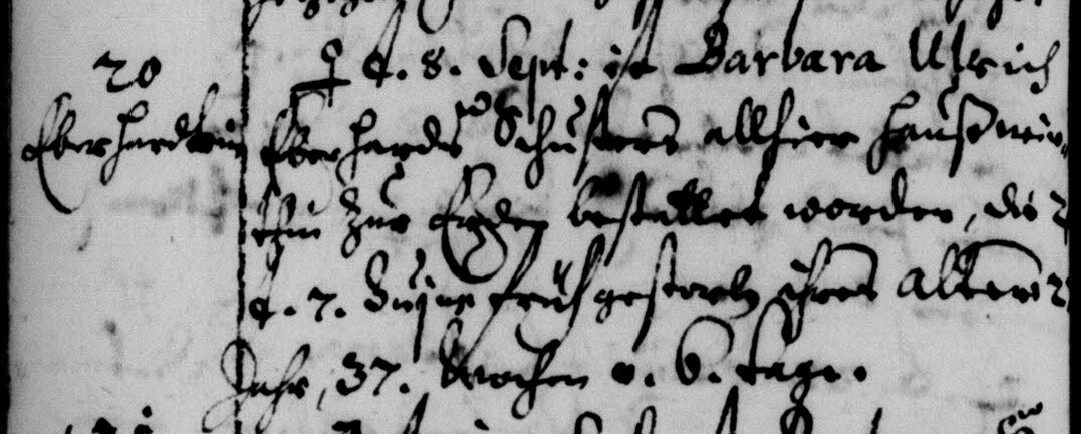 20
Eberhardtin
♀ d. 8. Sept: ist Barbara Ulrich
Eberhards Schusters allhier Haußwir-
thin zur Erden bestattet worden, die
d. 7. hujus früh gestorb. ihres Alters
Jahr, 37. Wochen u. 6. tage.